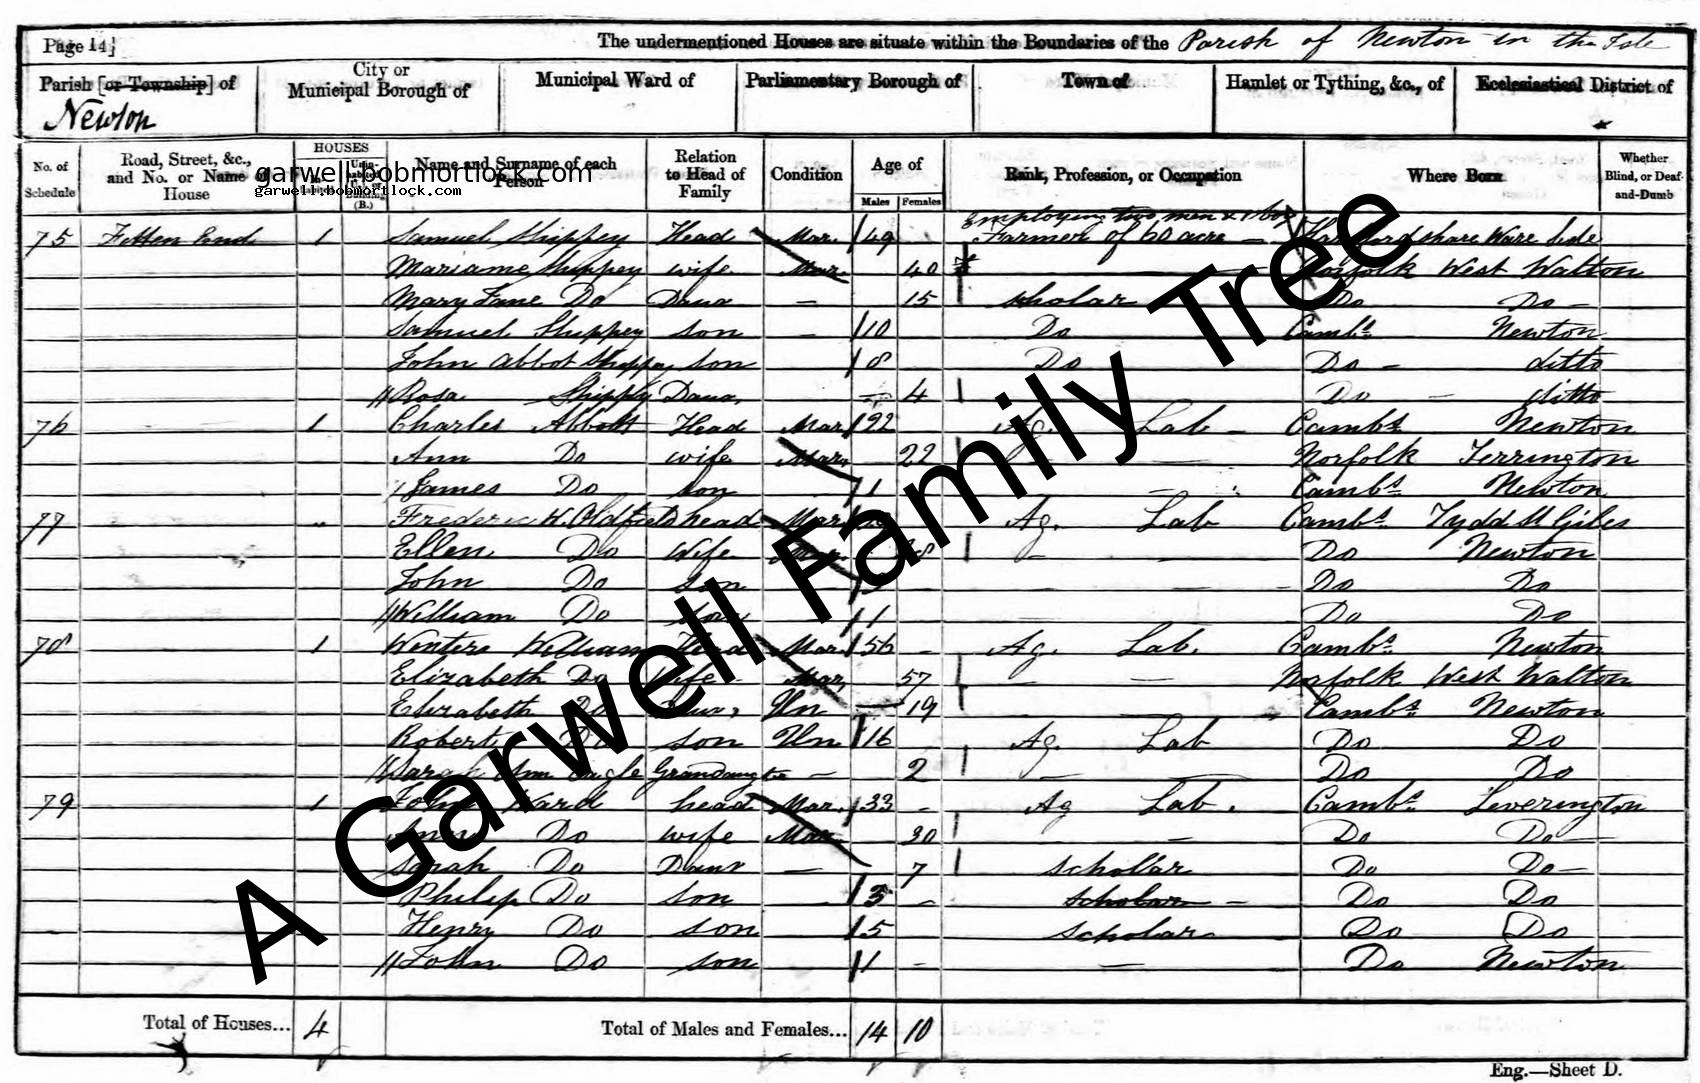 Page 14}
The undermentioned Houses are situate within the Boundaries of the Parish of Newton in the Isle
Parish [or Township] of
Newton
City or
Municipal Borough of
Municipal Ward of
Parliamentary Borough of
Town of
Hamlet or Tything, &c., of
Ecclesiastical District of
No. of
Schedule
Road, Street, &c.,
and No. or Name of
House
HOUSES
(B.)
Name and Surname of each
Person
Relation
to Head of
Family
Condition
Age of
Males
Females
Rank, Profession, or Occupation
Where Born
Whether
Blind, or Deaf-
and-Dumb
garwell.bobmortlock.com
garwell.bobmortlock.com
employing two men & 1 boy
75 Fitten End 1 Samuel Shippey Head Mar. 49 Farmer of 60 acre Ware Side
Shippey wife Mar 40 Norfolk West Walton
Mary Jane Do Daur 15 scholar Do Do
Samuel Shippey son 10 Do Cambs Newton
John Abbot Shippey son 8 Do Do ditto
Rosa Shippey Daur, 4 Do ditto
76 1 Charles Abbott Head Mar 22 Ag. Lab Cambs Newton
Ann Do wife Mar 22 Norfolk Terrington
James Do son 1 Cambs Newton
77 Frederic W. Oldfield head Mar Ag. Lab Cambs Tydd St Giles
Ellen Do Wife Do Newton
John Do son Do Do
William Do son 1 Do Do
78 1 Winters William Head Mar. 56 Ag. Lab. Cambs Newton
Elizabeth Do Wife Mar 57 Norfolk West Walton
Elizabeth Do Daur, Un 19 Cambs Newton
Robert Do son Un 16 Ag. Lab Do Do
Sarah Ann Eagle 2 Do Do
79 1 John Ward head Mar. 33 Ag Lab. Cambs Leverington
Do wife Mar 30 Do Do
Sarah Do Daur 7 schollar Do Do
Philip Do son 3 scholar Do Do
Henry Do son 5 scholar Do Do
John Do son 1 Do Newton
A Garwell Family Tree
Total of Houses... 4
Total of Males and Females... 14 10
Eng.—Sheet D.